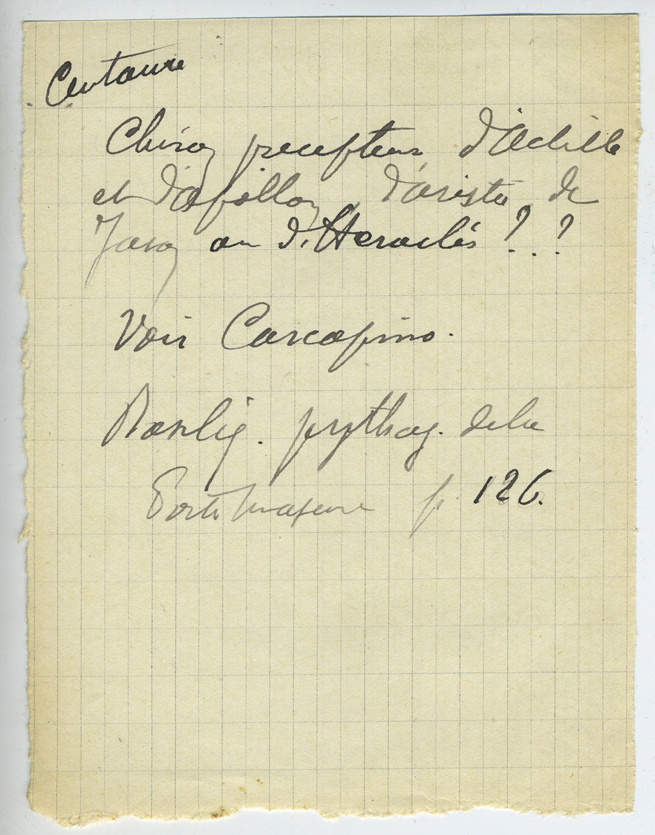 Centaure
Chiron precepteur d'Achille
et d'Apollon, d'Aristé, de
Jason ou d'Heraclés ? . . ?
Voir Carcopino.
Basiliq. pythag. de la
Porte Majeure p. 126.